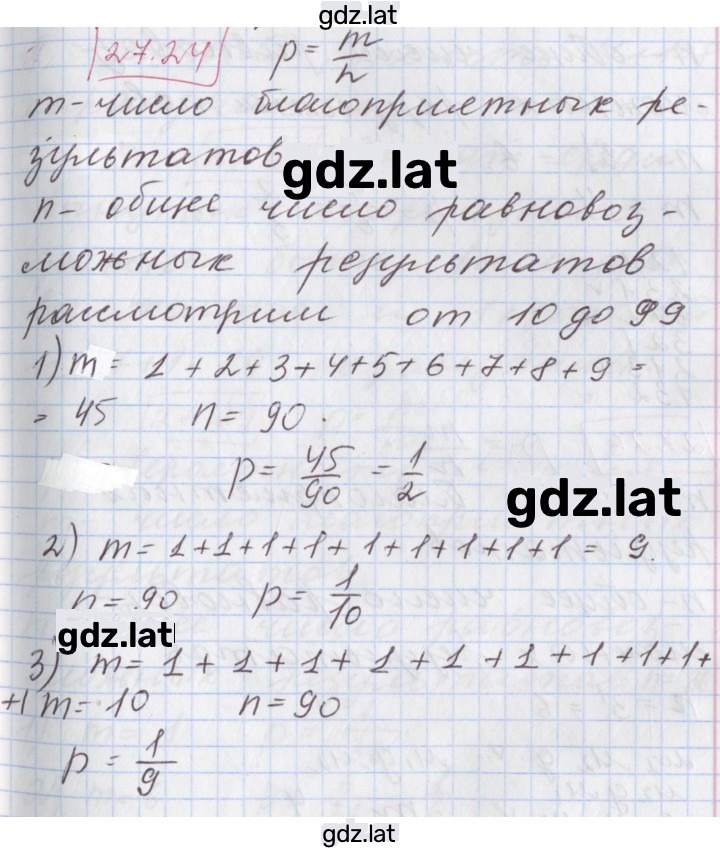 gdz.lat
27.24 p = m/n
m - число благоприятных ре-
зультатов
gdz.lat
n - общее число равновоз-
можных результатов
рассмотрим от 10 до 99
1) m = 1 + 2 + 3 + 4 + 5 + 6 + 7 + 8 + 9 =
= 45 n = 90.
p = 45/90 = 1/2
gdz.lat
2) m = 1+1+1+1+1+1+1+1+1 = 9.
n = 90 p = 1/10
gdz.lat
3) m = 1 + 1 + 1 + 1 + 1 + 1 + 1 + 1 + 1 +
+1 m = 10 n = 90
p = 1/9
gdz.lat